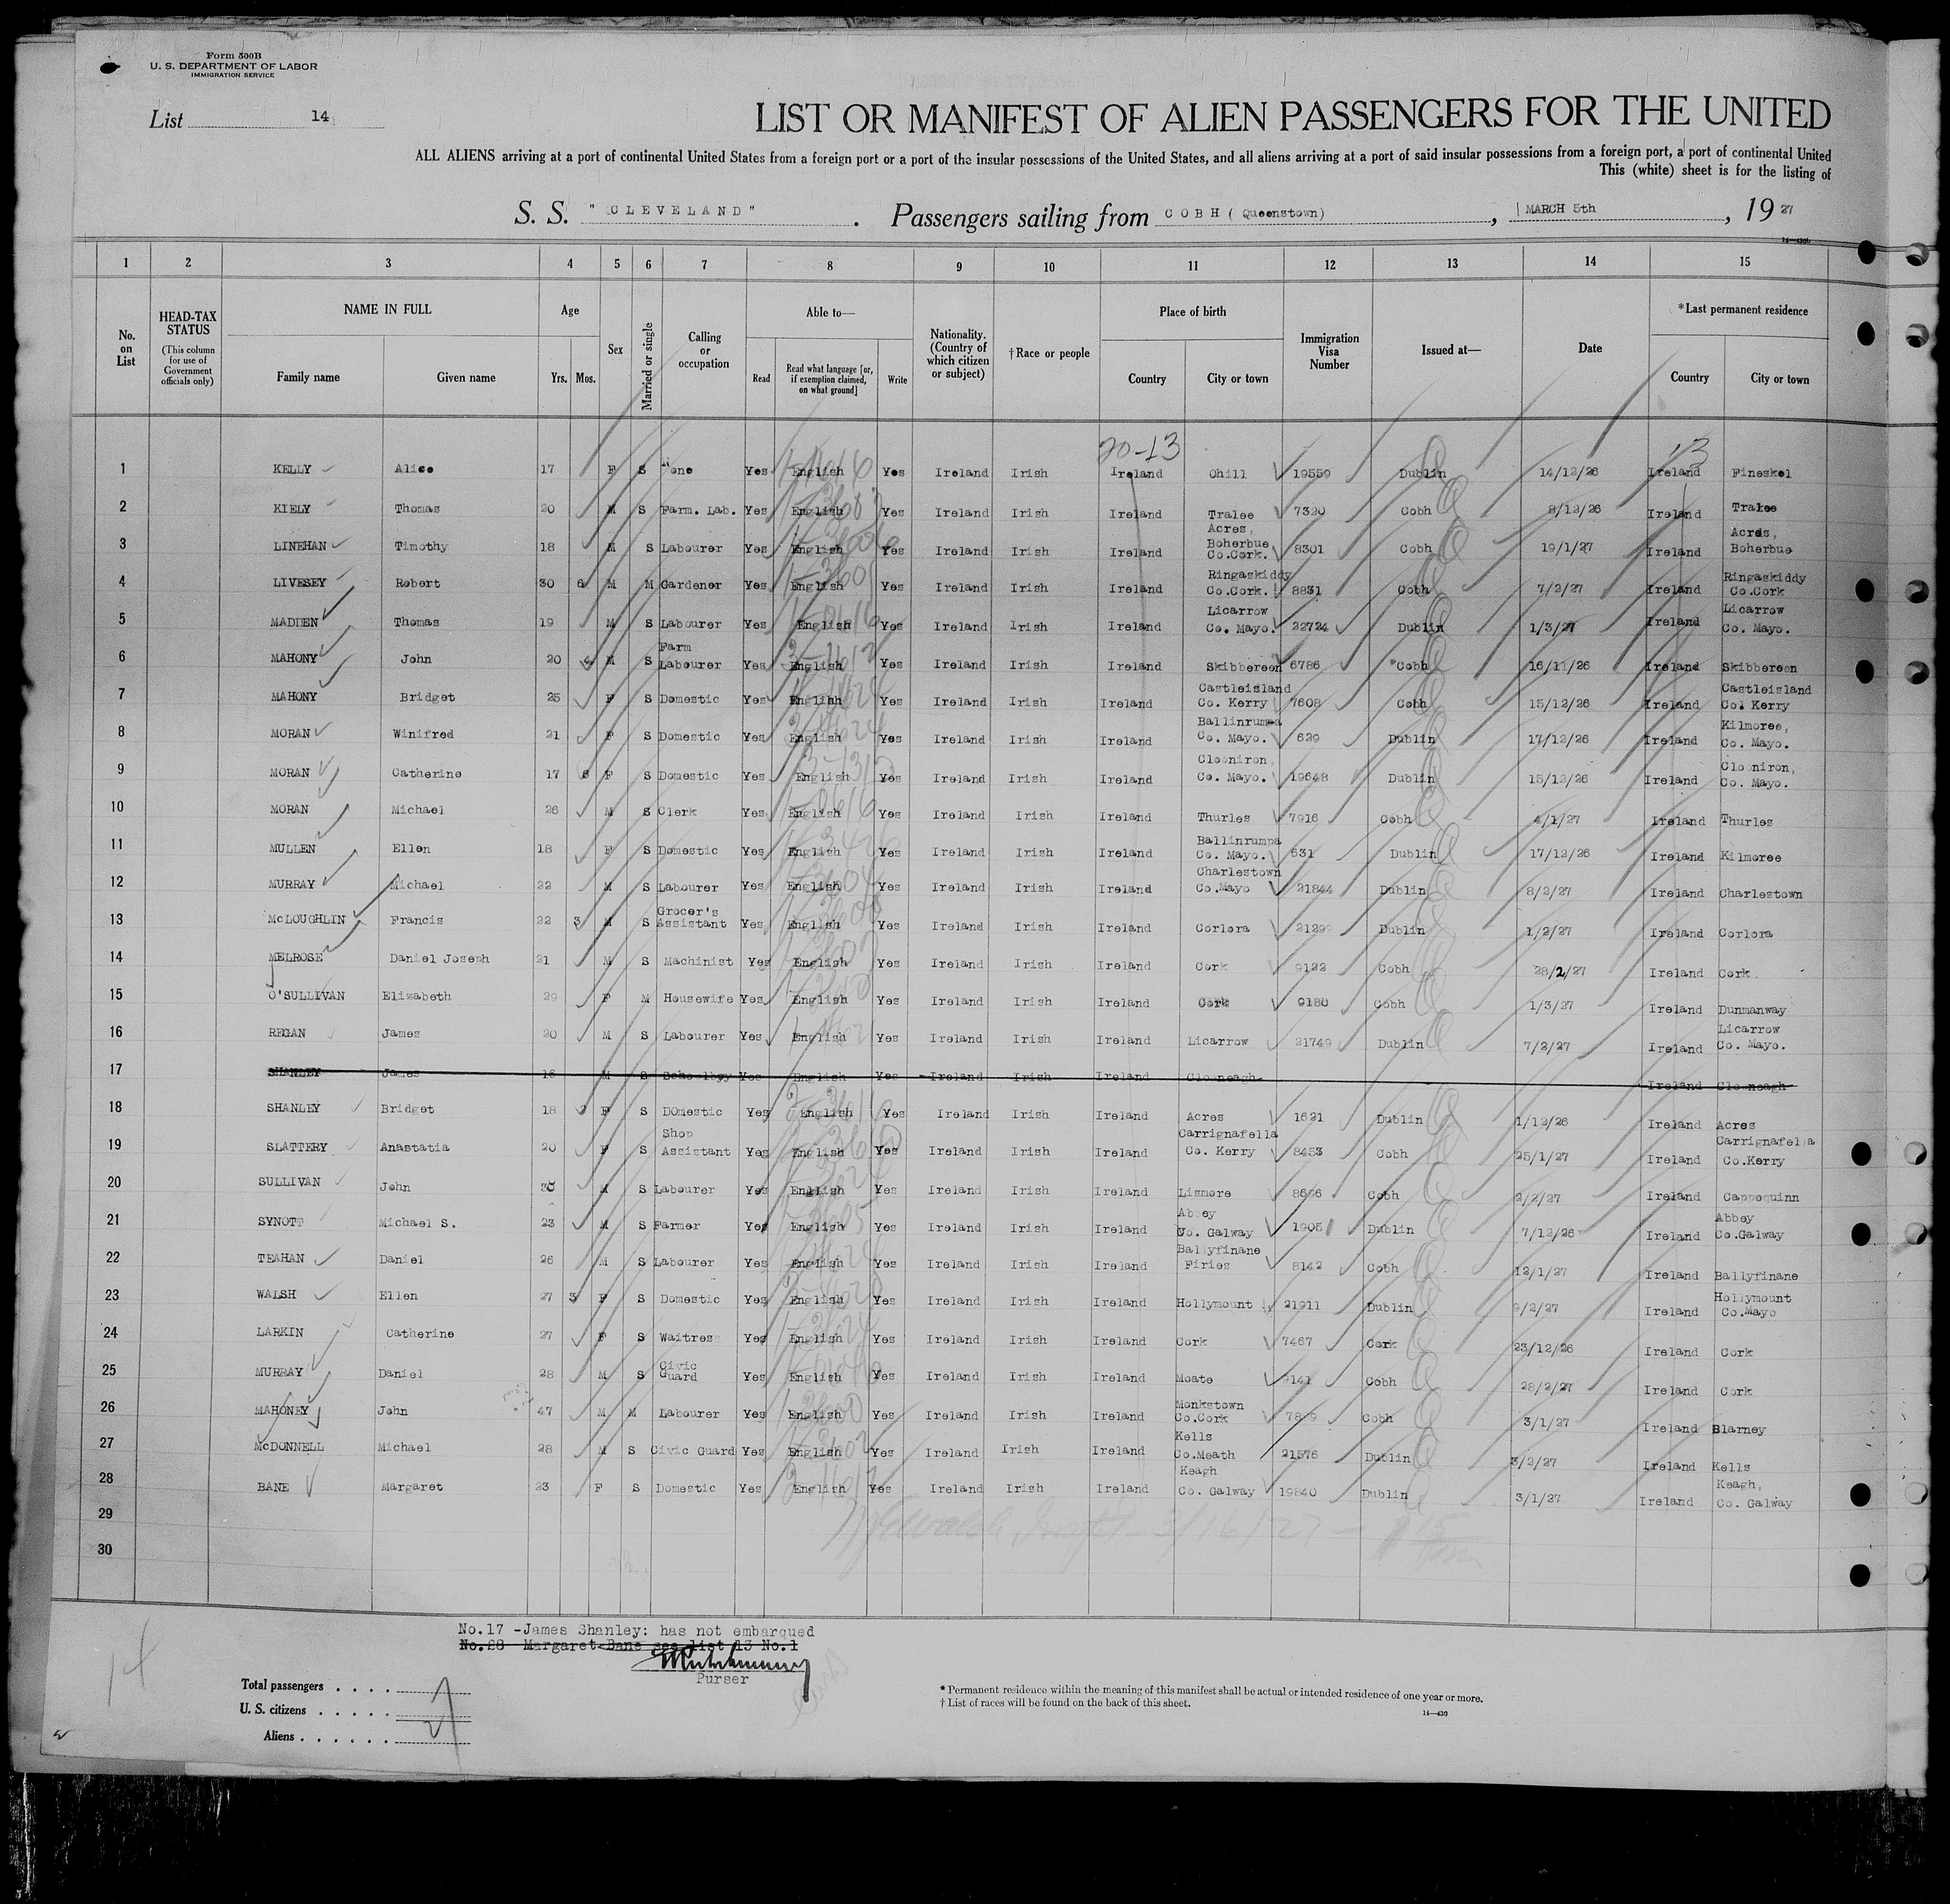 Form 500B
U. S. DEPARTMENT OF LABOR
IMMIGRATION SERVICE
List 14
LIST OR MANIFEST OF ALIEN PASSENGERS FOR THE UNITED
ALL ALIENS arriving at a port of continental United States from a foreign port or a port of the insular possessions of the United States, and all aliens arriving at a port of said insular possessions from a foreign port, a port of continental United
This (white) sheet is for the listing of
S. S. " CLEVELAND " . Passengers sailing from COBH ( Queenstown) , MARCH 5th , 19 27
1 2 3 4 5 6 7 8 9 10 11 12 13 14 15
No. on List
HEAD-TAX STATUS (This column for use of Government officials only)
NAME IN FULL Family name Given name
Age Yrs. Mos.
Sex
Married or single
Calling or occupation
Able to— Read Read what language [or, if exemption claimed, on what ground] Write
Nationality. (Country of which citizen or subject)
†Race or people
Place of birth Country City or town
Immigration Visa Number
Issued at—
Date
*Last permanent residence Country City or town
20-13 13
1 KELLY Alice 17 F S None Yes English Yes Ireland Irish Ireland Ohill 19559 Dublin 14/12/26 Ireland Fineskel
2 KIELY Thomas 20 M S Farm. Lab. Yes English Yes Ireland Irish Ireland Tralee 7320 Cobh 8/12/26 Ireland Tralee
3 LINEHAN Timothy 18 M S Labourer Yes English Yes Ireland Irish Ireland Acres, Boherbue, Co.Cork. 8301 Cobh 19/1/27 Ireland Acres, Boherbue
4 LIVESEY Robert 30 6 M M Gardener Yes English Yes Ireland Irish Ireland Ringaskiddy Co.Cork. 8831 Cobh 7/2/27 Ireland Ringaskiddy Co.Cork
5 MADDEN Thomas 19 M S Labourer Yes English Yes Ireland Irish Ireland Licarrow Co. Mayo. 22724 Dublin 1/3/27 Ireland Licarrow Co. Mayo.
6 MAHONY John 20 M S Farm Labourer Yes English Yes Ireland Irish Ireland Skibbereen 6786 Cobh 16/11/26 Ireland Skibbereen
7 MAHONY Bridget 25 F S Domestic Yes English Yes Ireland Irish Ireland Castleisland Co. Kerry 7608 Cobh 15/12/26 Ireland Castleisland Co. Kerry
8 MORAN Winifred 21 F S Domestic Yes English Yes Ireland Irish Ireland Ballinrumpa Co. Mayo. 629 Dublin 17/12/26 Ireland Kilmoree, Co. Mayo.
9 MORAN Catherine 17 6 F S Domestic Yes English Yes Ireland Irish Ireland Clooniron, Co. Mayo. 19648 Dublin 15/12/26 Ireland Clooniron, Co. Mayo.
10 MORAN Michael 26 M S Clerk Yes English Yes Ireland Irish Ireland Thurles 7916 Cobh 4/1/27 Ireland Thurles
11 MULLEN Ellen 18 F S Domestic Yes English Yes Ireland Irish Ireland Ballinrumpa Co. Mayo. 631 Dublin 17/12/26 Ireland Kilmoree
12 MURRAY Michael 22 M S Labourer Yes English Yes Ireland Irish Ireland Charlestown Co.Mayo 21844 Dublin 8/2/27 Ireland Charlestown
13 McLOUGHLIN Francis 22 3 M S Grocer's Assistant Yes English Yes Ireland Irish Ireland Corlora Dublin 1/2/27 Ireland Corlora
14 MELROSE Daniel Joseph 21 M S Machinist Yes English Yes Ireland Irish Ireland Cork 9122 Cobh 28/2/27 Ireland Cork
15 O'SULLIVAN Elizabeth 29 F M Housewife Yes English Yes Ireland Irish Ireland Cork 9180 Cobh 1/3/27 Ireland Dunmanway
16 REGAN James 20 M S Labourer Yes English Yes Ireland Irish Ireland Licarrow 21749 Dublin 7/2/27 Ireland Licarrow Co. Mayo.
17 SHANLEY James 16 M S Schoolboy Yes English Yes Ireland Irish Ireland Clooneagh Ireland Clooneagh
18 SHANLEY Bridget 18 F S DOmestic Yes English Yes Ireland Irish Ireland Acres 1621 Dublin 1/12/26 Ireland Acres
19 SLATTERY Anastatia 20 F S Shop Assistant Yes English Yes Ireland Irish Ireland Carrignafella Co. Kerry 8453 Cobh 25/1/27 Ireland Carrignafella Co.Kerry
20 SULLIVAN John M S Labourer Yes English Yes Ireland Irish Ireland Lismore 8696 Cobh 2/2/27 Ireland Cappoquinn
21 SYNOTT Michael S. 23 M S Farmer Yes English Yes Ireland Irish Ireland Abbey Co. Galway 19051 Dublin 7/12/26 Ireland Abbey Co.Galway
22 TEAHAN Daniel 26 M S Labourer Yes English Yes Ireland Irish Ireland Ballyfinane Firies 8142 Cobh 12/1/27 Ireland Ballyfinane
23 WALSH Ellen 27 3 F S Domestic Yes English Yes Ireland Irish Ireland Hollymount 21911 Dublin 9/2/27 Ireland Hollymount Co.Mayo
24 LARKIN Catherine 27 F S Waitress Yes English Yes Ireland Irish Ireland Cork 7467 Cork 23/12/26 Ireland Cork
25 MURRAY Daniel 28 M S Civic Guard Yes English Yes Ireland Irish Ireland Moate 9141 Cobh 28/2/27 Ireland Cork
26 MAHONEY John 47 M M Labourer Yes English Yes Ireland Irish Ireland Monkstown Co.Cork Cobh 3/1/27 Ireland Blarney
27 McDONNELL Michael 28 M S Civic Guard Yes English Yes Ireland Irish Ireland Kells Co.Meath 21576 Dublin 3/2/27 Ireland Kells
28 BANE Margaret 23 F S Domestic Yes English Yes Ireland Irish Ireland Keagh Co. Galway 19840 Dublin 3/1/27 Ireland Keagh, Co. Galway
29
30
No.17 -James Shanley: has not embarqued
No.28 Margaret Bane see list 13 No.1
Purser
14
Total passengers . . . .
U. S. citizens . . . . .
Aliens . . . . . .
27
* Permanent residence within the meaning of this manifest shall be actual or intended residence of one year or more.
† List of races will be found on the back of this sheet.
14—430